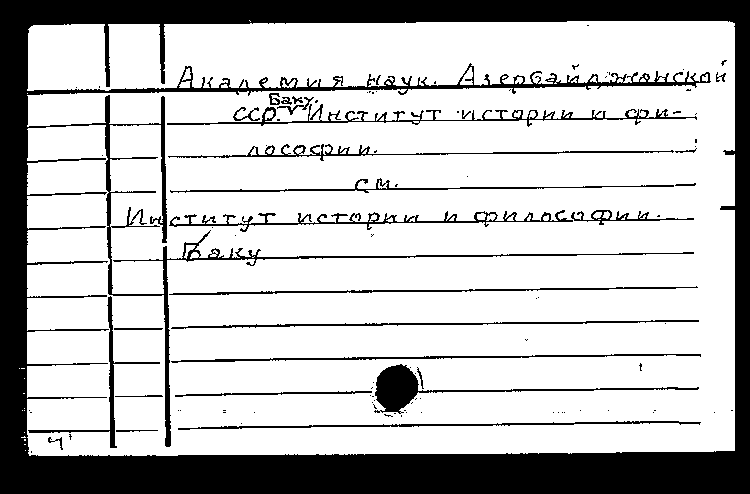 Академия наук. Азербайджанской
Баку.
ССР. Институт истории и фи-
лософии.
см.
Институт истории и философии.
Баку